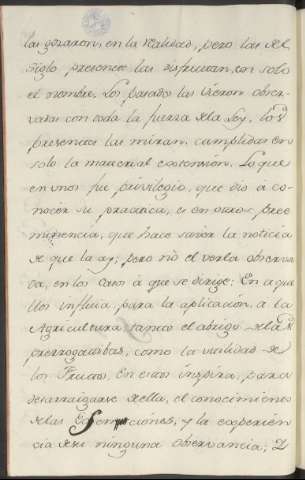 las gozaron, en la realidad, pero las del
Siglo presente las disfrutan, en solo
el nombre. Los pasados las vieron obser-
vadas con toda la fuerza de la Ley, los
presentes las miran, cumplidas en
solo la material extension. Lo que
en unos fue privilegio, que dio à co-
nocer su practica, es en otros pree
minencia, que hace saver la noticia
de que la ay; pero nò el verla observa-
da, en los casos à que se dirige: En aque
llos influia para la aplicacion, a la
Agricultura tanto el abrigo de las
prerrogativas, como la utilidad de
los Frutos, En estos inspira, para
desarraigarse de ella, el conocimiento
de las Esempciones, y la experien
cia de su ninguna observancia; Y